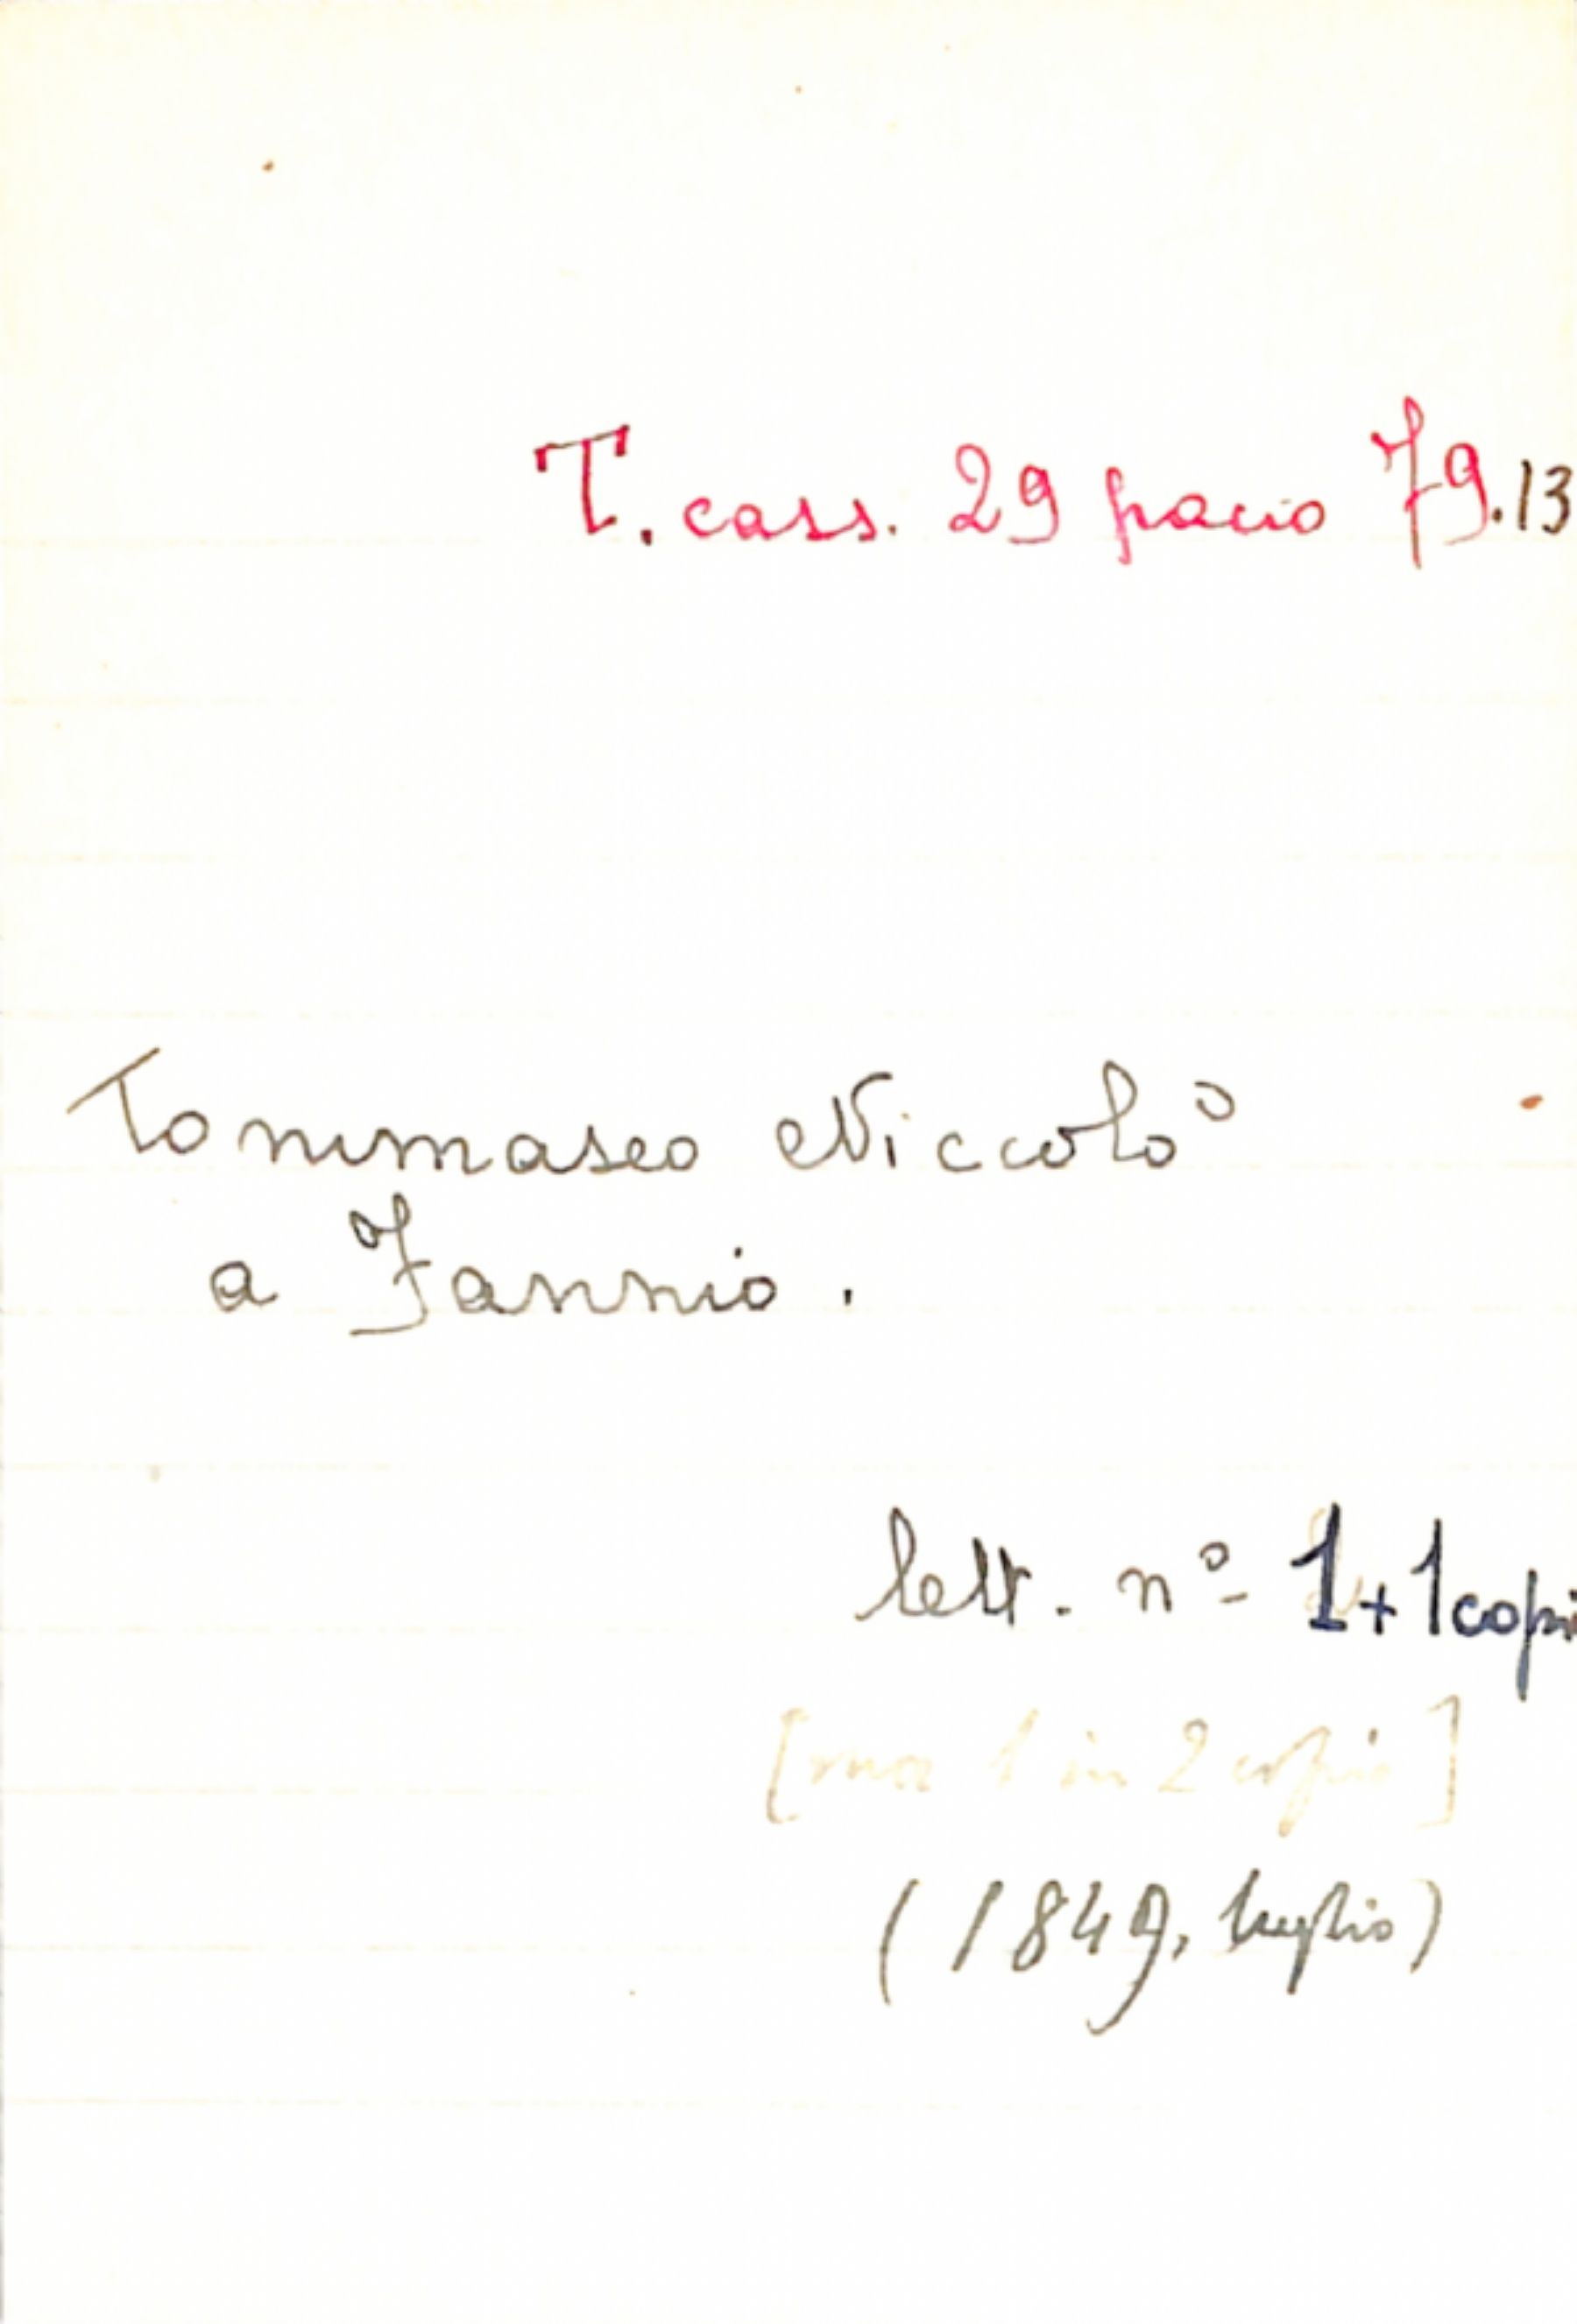 T. cass. 29 pacco 79.13
Tommaseo Niccolò
a Fannio.
lett. nº 1 + 1 copi
[ma 1 in 2 copie]
(1849, luglio)